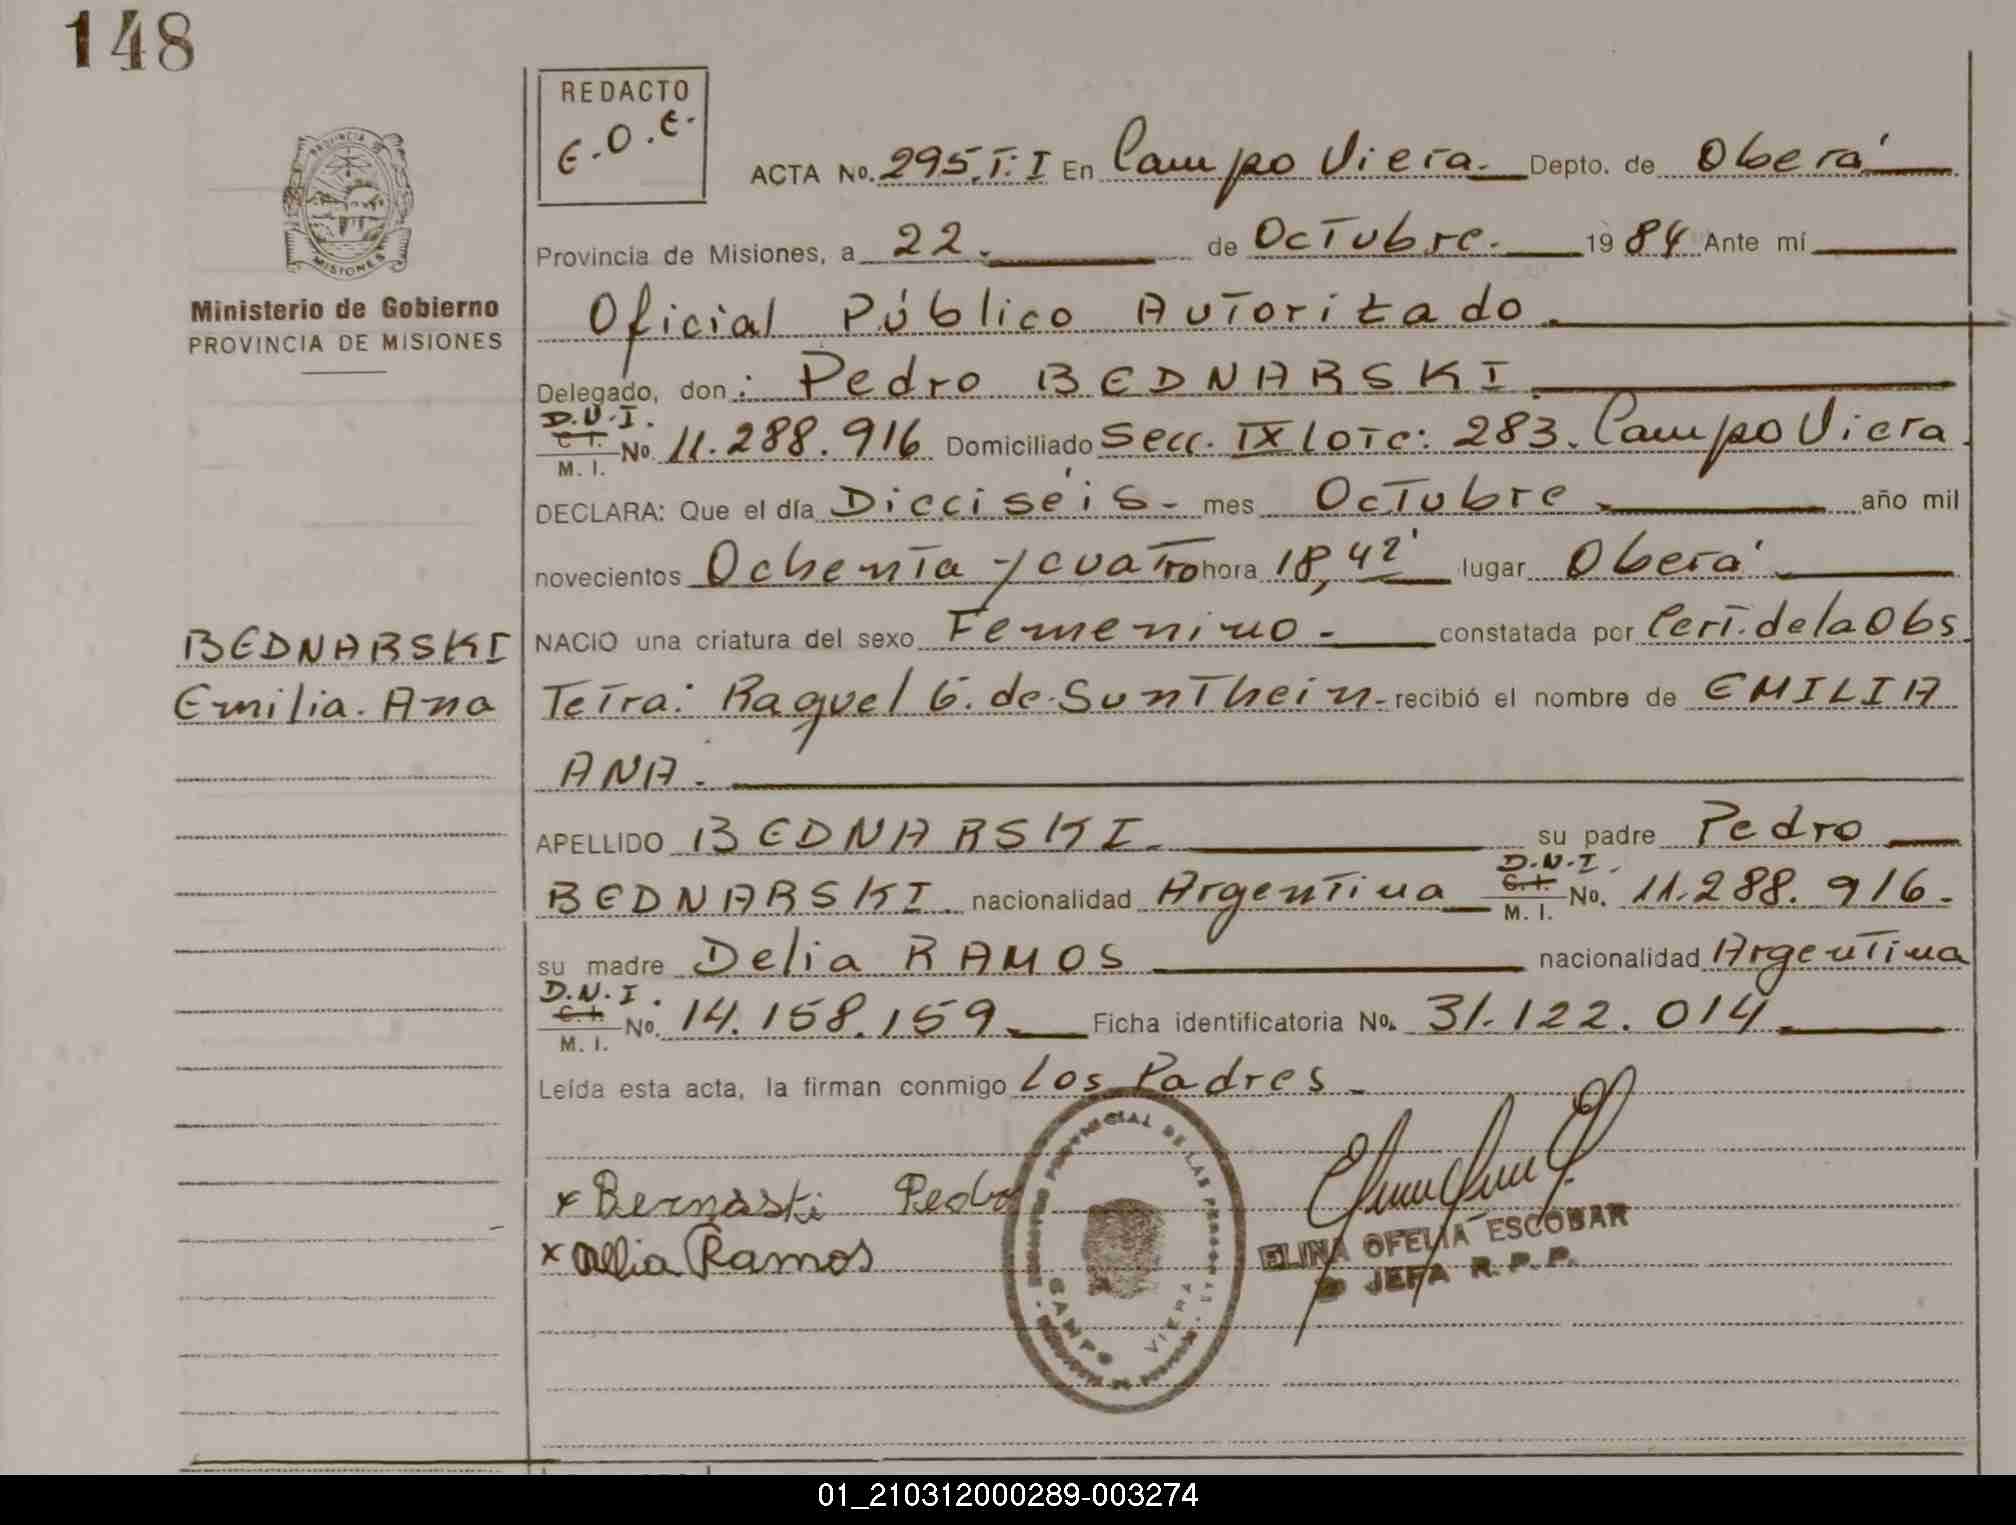 148
REDACTO
E.O.E.
PROVINCIA DE
MISIONES
Ministerio de Gobierno
PROVINCIA DE MISIONES
ACTA No. 295.T:I En Campo Viera. Depto. de Oberá
Provincia de Misiones, a 22. de Octubre. 19 84 Ante mí
Oficial Público Autorizado.
Delegado, don: Pedro BEDNARSKI
D.N.I.
C. I.
M. I. No. 11.288.916 Domiciliado Secc. IX Lote: 283. Campo Viera.
DECLARA: Que el día Dieciséis - mes Octubre - año mil
novecientos Ochenta y cuatro hora 18,42' lugar Oberá
NACIO una criatura del sexo Femenino - constatada por Cert. de la Obs
BEDNARSKI
Emilia. Ana
Tetra: Raquel G. de Sunthein - recibió el nombre de EMILIA
ANA.
APELLIDO BEDNARSKI. su padre Pedro
BEDNARSKI. nacionalidad Argentina D.N.I. C. I. M. I. No. 11.288.916.
su madre Delia RAMOS nacionalidad Argentina
D.N.I.
C. I.
M. I. No. 14.158.159 Ficha identificatoria No. 31.122.014
Leída esta acta, la firman conmigo Los Padres -
x Bernaski Pedro
x Delia Ramos
PROVINCIAL DE LAS PERSONAS
CAMPO VIERA
ELINA OFELIA ESCOBAR
JEFA R. P. P.
01_210312000289-003274